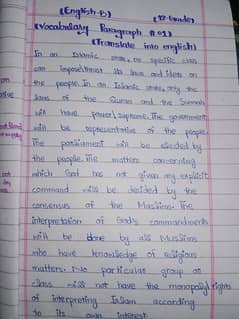 (English-B) (12-Grade)
(Vocabulary Paragraph #01)
(Translate into english)
In an Islamic state, no specific class
can impose/thrust its laws and likes on
the people. In an Islamic state, only the
laws of the Quran and the Sunnah
will have power/supreme. The government
will be representative of the people.
The parliament will be elected by
the people. The matters concerning
which God has not given any explicit
command will be decided by the
consensus of the Muslims. The
interpretation of God's commandments
will be done by all Muslims
who have knowledge of religious
matters. No particular group or
class will not have the monopoly/rights
of interpreting Islam according
to its own interest